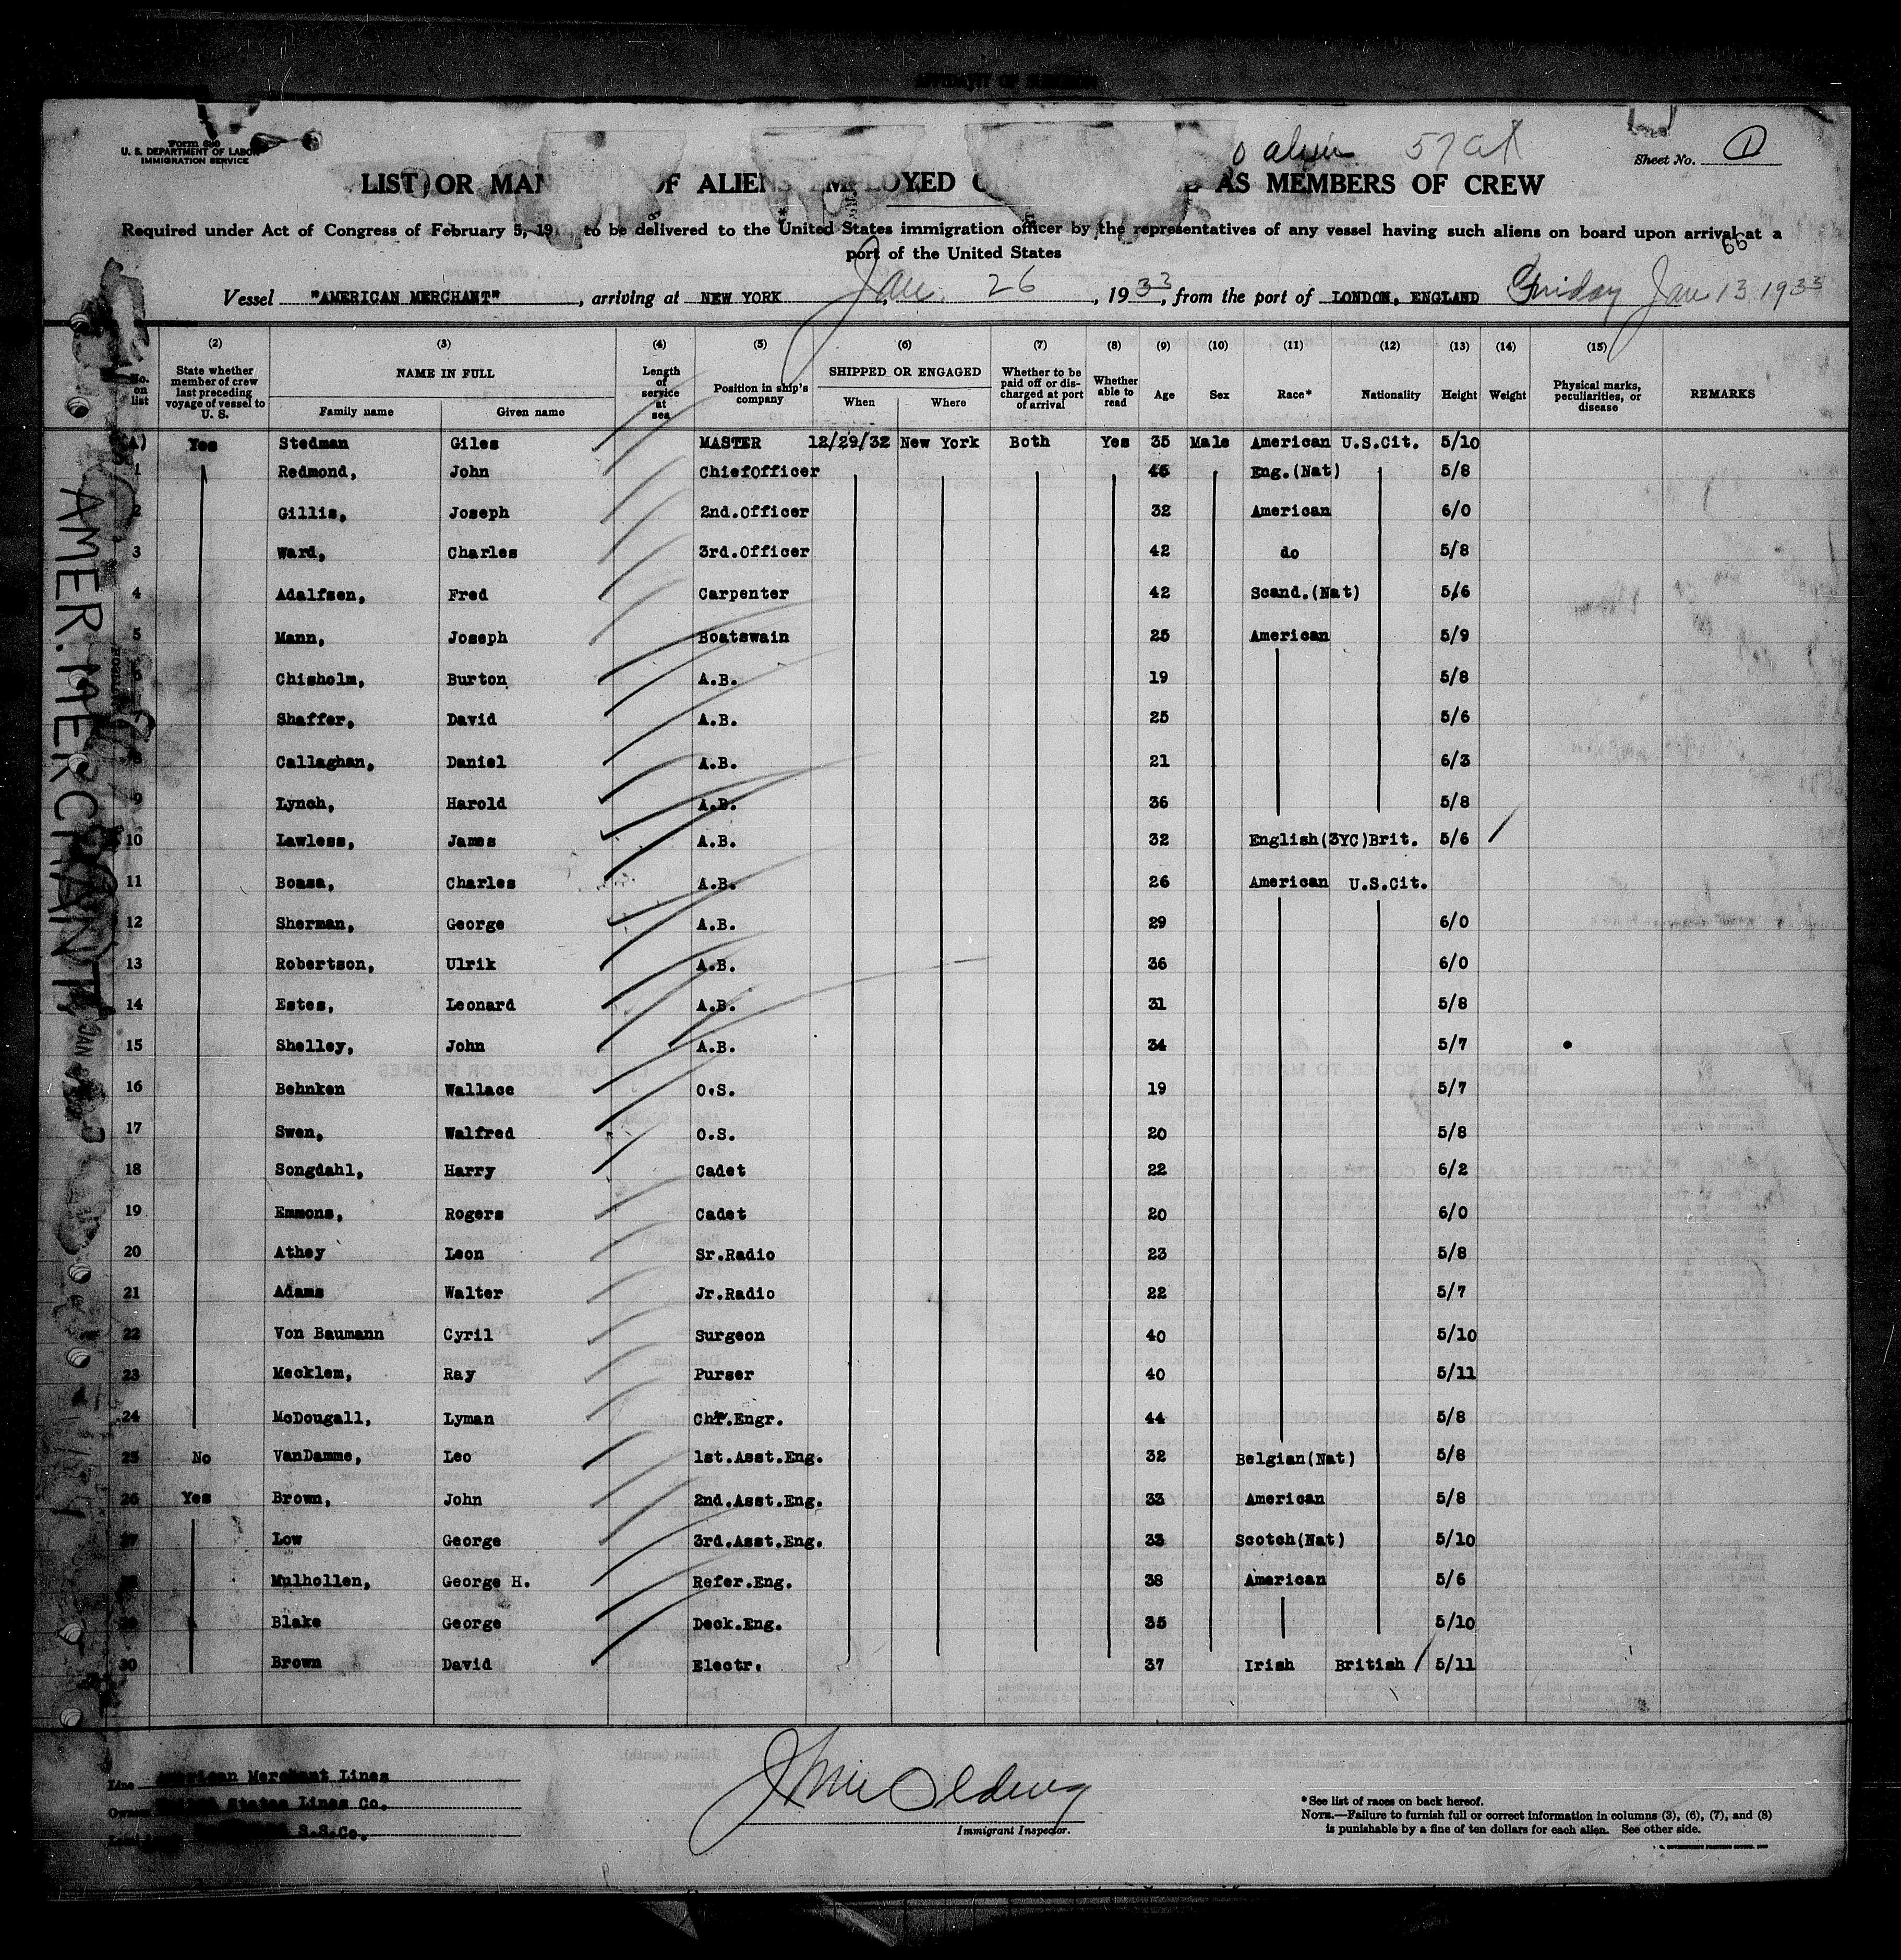 Form 680
U. S. DEPARTMENT OF LABOR
IMMIGRATION SERVICE
Sheet No. 1
LIST OR MAN F ALIENS EMPLOYED AS MEMBERS OF CREW
Required under Act of Congress of February 5, 19 to be delivered to the United States immigration officer by the representatives of any vessel having such aliens on board upon arrival at a
port of the United States
66
Vessel "AMERICAN MERCHANT", arriving at NEW YORK Jan. 26, 1933, from the port of LONDON, ENGLAND Friday Jan 13 1933
(2) (3) (4) (5) (6) (7) (8) (9) (10) (11) (12) (13) (14) (15)
No. on list State whether member of crew last preceding voyage of vessel to U. S. NAME IN FULL Family name Given name Length of service at sea Position in ship's company SHIPPED OR ENGAGED When Where Whether to be paid off or discharged at port of arrival Whether able to read Age Sex Race* Nationality Height Weight Physical marks, peculiarities, or disease REMARKS
(A) Yes Stedman Giles MASTER 12/29/32 New York Both Yes 35 Male American U.S.Cit. 5/10
1 Redmond, John ChiefOfficer 45 Eng.(Nat) 5/8
2 Gillis, Joseph 2nd.Officer 32 American 6/0
3 Ward, Charles 3rd.Officer 42 do 5/8
4 Adalfsen, Fred Carpenter 42 Scand.(Nat) 5/6
5 Mann, Joseph Boatswain 25 American 5/9
6 Chisholm, Burton A.B. 19 5/8
Shaffer, David A.B. 25 5/6
8 Callaghan, Daniel A.B. 21 6/3
9 Lynch, Harold A.B. 36 5/8
10 Lawless, James A.B. 32 English(3YC)Brit. 5/6
11 Boasa, Charles A.B. 26 American U.S.Cit.
12 Sherman, George A.B. 29 6/0
13 Robertson, Ulrik A.B. 36 6/0
14 Estes, Leonard A.B. 31 5/8
15 Shelley, John A.B. 34 5/7
16 Behnken Wallace O.S. 19 5/7
17 Swen, Walfred O.S. 20 5/8
18 Songdahl, Harry Cadet 22 6/2
19 Emmons, Rogers Cadet 20 6/0
20 Athey Leon Sr.Radio 23 5/8
21 Adams Walter Jr.Radio 22 5/7
22 Von Baumann Cyril Surgeon 40 5/10
23 Mecklem, Ray Purser 40 5/11
24 McDougall, Lyman Chf.Engr. 44 5/8
25 No VanDamme, Leo 1st.Asst.Eng. 32 Belgian(Nat) 5/8
26 Yes Brown, John 2nd.Asst.Eng. 33 American 5/8
27 Low George 3rd.Asst.Eng. 33 Scotch(Nat) 5/10
Mulhollen, George H. Refer.Eng. 38 American 5/6
Blake George Deck.Eng. 35 5/10
30 Brown David Electr. 37 Irish British 5/11
AMER. MERCHANT
Line American Merchant Lines
Owners States Lines Co.
S.S.Co.
Immigrant Inspector.
* See list of races on back hereof.
NOTE.—Failure to furnish full or correct information in columns (3), (6), (7), and (8)
is punishable by a fine of ten dollars for each alien. See other side.